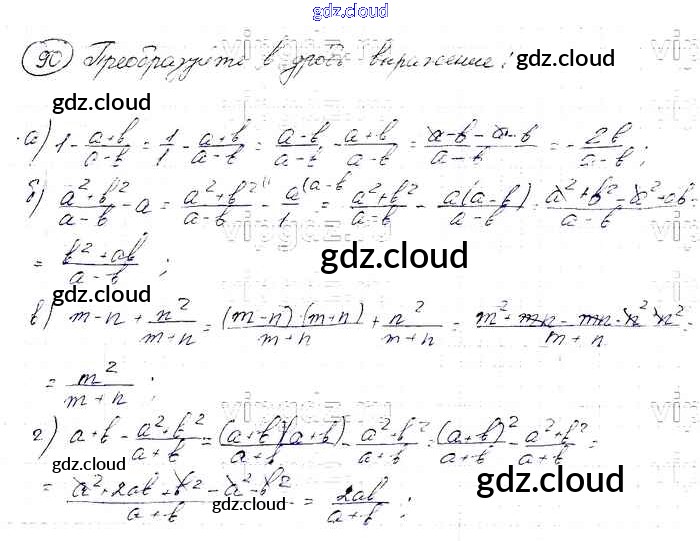 gdz.cloud
90 Преобразуйте в дробь выражение:
gdz.cloud
gdz.cloud
а) 1 - (a+b)/(a-b) = 1/1 - (a+b)/(a-b) = (a-b)/(a-b) - (a+b)/(a-b) = (a-b-a-b)/(a-b) = -2b/(a-b);
gdz.cloud
gdz.cloud
б) (a²+b²)/(a-b) - a = (a²+b²)/(a-b) - a/1 (a-b = (a²+b²)/(a-b) - a(a-b)/(a-b) = (a²+b²-a²+ab)/(a-b) =
= (b²+ab)/(a-b);
gdz.cloud
gdz.cloud
в) m-n + n²/(m+n) = (m-n)(m+n)/(m+n) + n²/(m+n) = (m²+mn-mn-n² n²)/(m+n)
= m²/(m+n);
gdz.cloud
г) a+b - (a²+b²)/(a+b) = (a+b)(a+b)/(a+b) - (a²+b²)/(a+b) = (a+b)²/(a+b) - (a²+b²)/(a+b) =
gdz.cloud
= (a²+2ab+b²-a²-b²)/(a+b) = 2ab/(a+b);
gdz.cloud
gdz.cloud